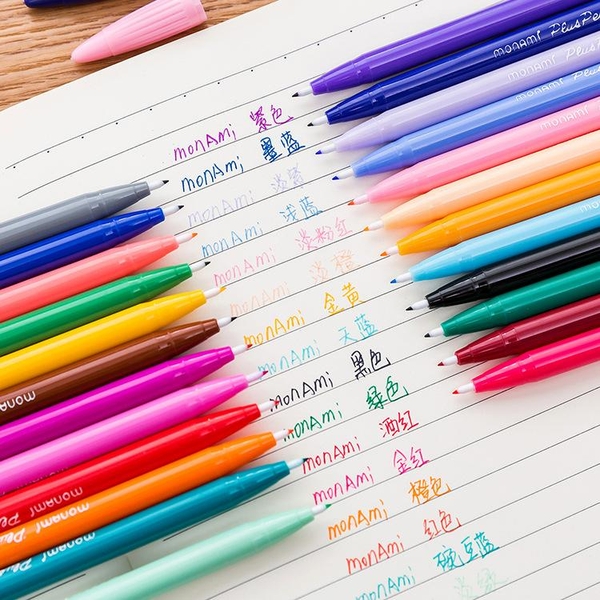 monami PlusPe
monami PlusPe
monami
monami
monAmi 紫色
monAmi 墨蓝
monAmi
monAmi 浅蓝
monAmi 淡粉红
monAmi 淡橙
monAmi 金黄
monAmi 天蓝
monAmi 黑色
monAmi 绿色
monAmi 酒红
monAmi 金红
monAmi 橙色
monAmi 红色
monAmi 豆蓝
淡绿
monami
monami
monami
monami